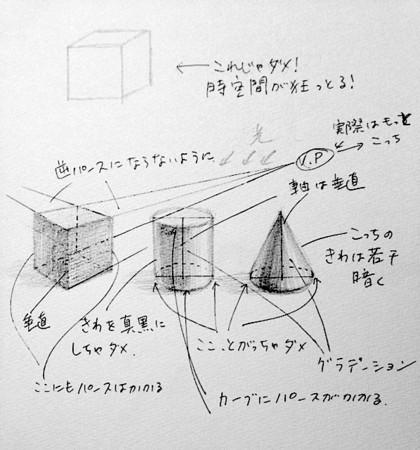 これじゃダメ!
時空間が狂っとる!
実際はもっと
こっち
光
V.P
逆パースにならないように
軸は垂直
こっちの
きわは若干
暗く
垂直
きわを真黒に
しちゃダメ.
ここ、とがっちゃダメ
グラデーション
ここにもパースはかかる
カーブにパースがかかる.